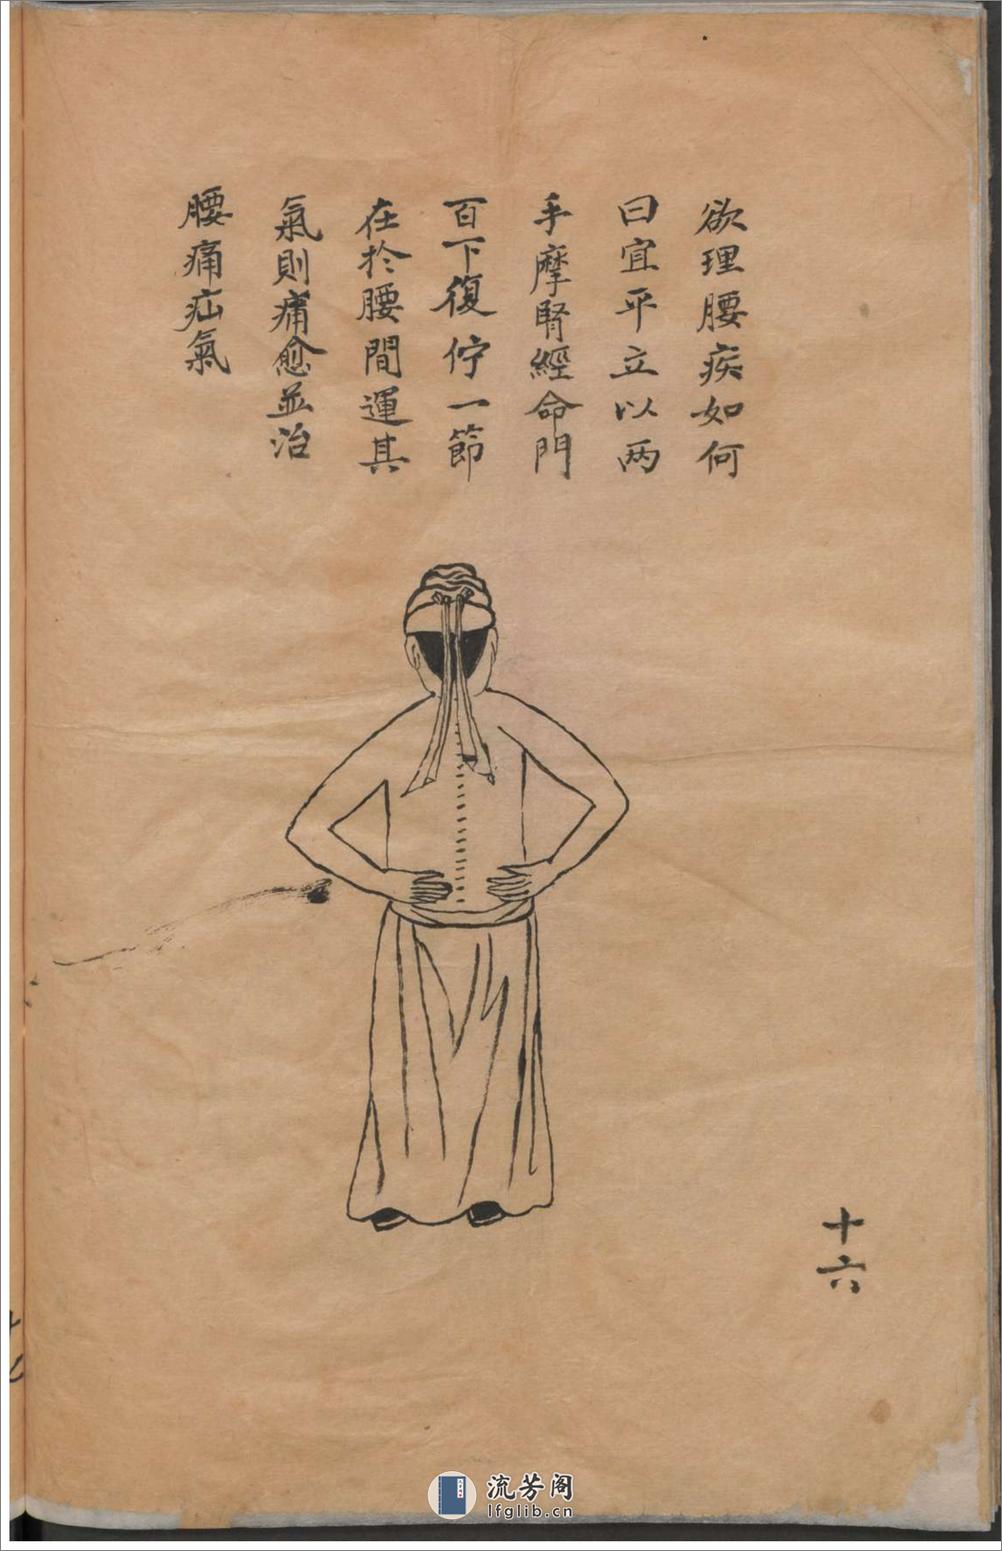 欲理腰疾如何
曰宜平立以两
手摩腎經命門
百下復佇一節
在於腰間運其
氣則痛愈並治
腰痛疝氣
十六
流芳阁
lfglib.cn